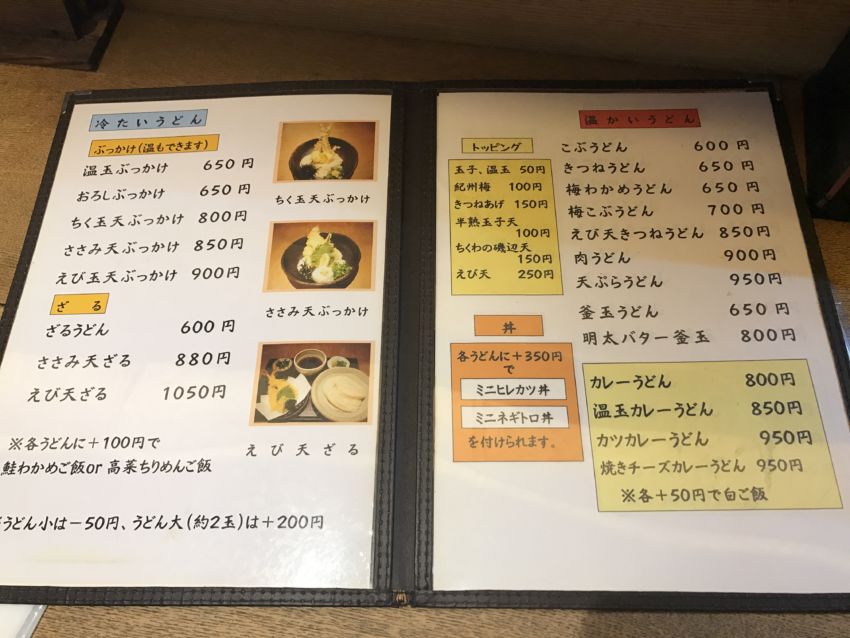 冷たいうどん
ぶっかけ(温もできます)
温玉ぶっかけ 650円
おろしぶっかけ 650円
ちく玉天ぶっかけ 800円
ささみ天ぶっかけ 850円
えび玉天ぶっかけ 900円
ざる
ざるうどん 600円
ささみ天ざる 880円
えび天ざる 1050円
※各うどんに+100円で
鮭わかめご飯or高菜ちりめんご飯
うどん小は-50円、うどん大(約2玉)は+200円
ちく玉天ぶっかけ
ささみ天ぶっかけ
えび天ざる
温かいうどん
トッピング
玉子、温玉 50円
紀州梅 100円
きつねあげ 150円
半熟玉子天
100円
ちくわの磯辺天
150円
えび天 250円
丼
各うどんに+350円
で
ミニヒレカツ丼
ミニネギトロ丼
を付けられます。
こぶうどん 600円
きつねうどん 650円
梅わかめうどん 650円
梅こぶうどん 700円
えび天きつねうどん 850円
肉うどん 900円
天ぷらうどん 950円
釜玉うどん 650円
明太バター釜玉 800円
カレーうどん 800円
温玉カレーうどん 850円
カツカレーうどん 950円
焼きチーズカレーうどん 950円
※各+50円で白ご飯